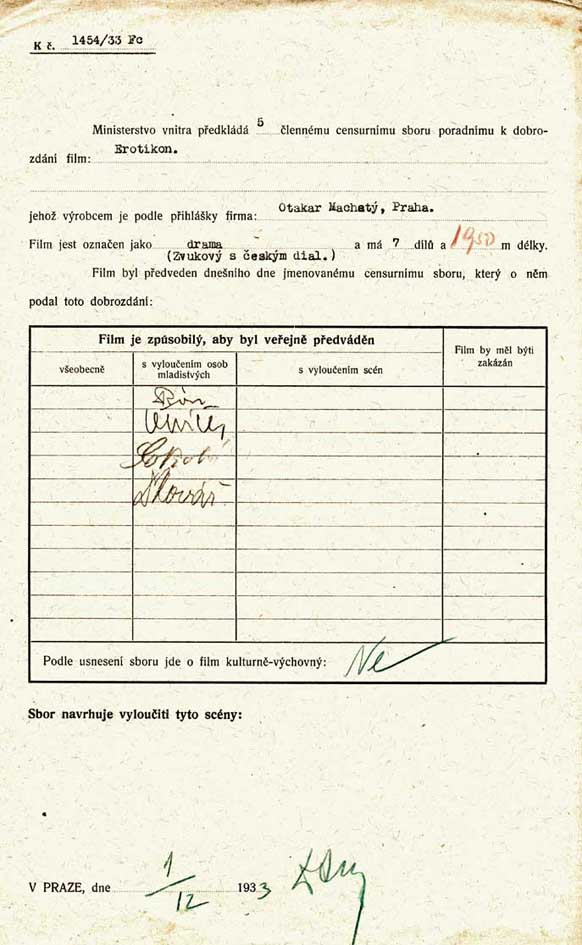 K č. 1454/33 Fc
Ministerstvo vnitra předkládá 5 člennému censurnímu sboru poradnímu k dobro-
zdání film: Erotikon.
jehož výrobcem je podle přihlášky firma: Otakar Machatý, Praha.
Film jest označen jako drama a má 7 dílů a 1950 m délky.
(Zvukový s českým dial.)
Film byl předveden dnešního dne jmenovanému censurnímu sboru, který o něm
podal toto dobrozdání:
Film je způsobilý, aby byl veřejně předváděn
Film by měl býti
zakázán
všeobecně
s vyloučením osob
mladistvých
s vyloučením scén
Podle usnesení sboru jde o film kulturně-výchovný: Ne
Sbor navrhuje vyloučiti tyto scény:
V PRAZE, dne 1/12 1933